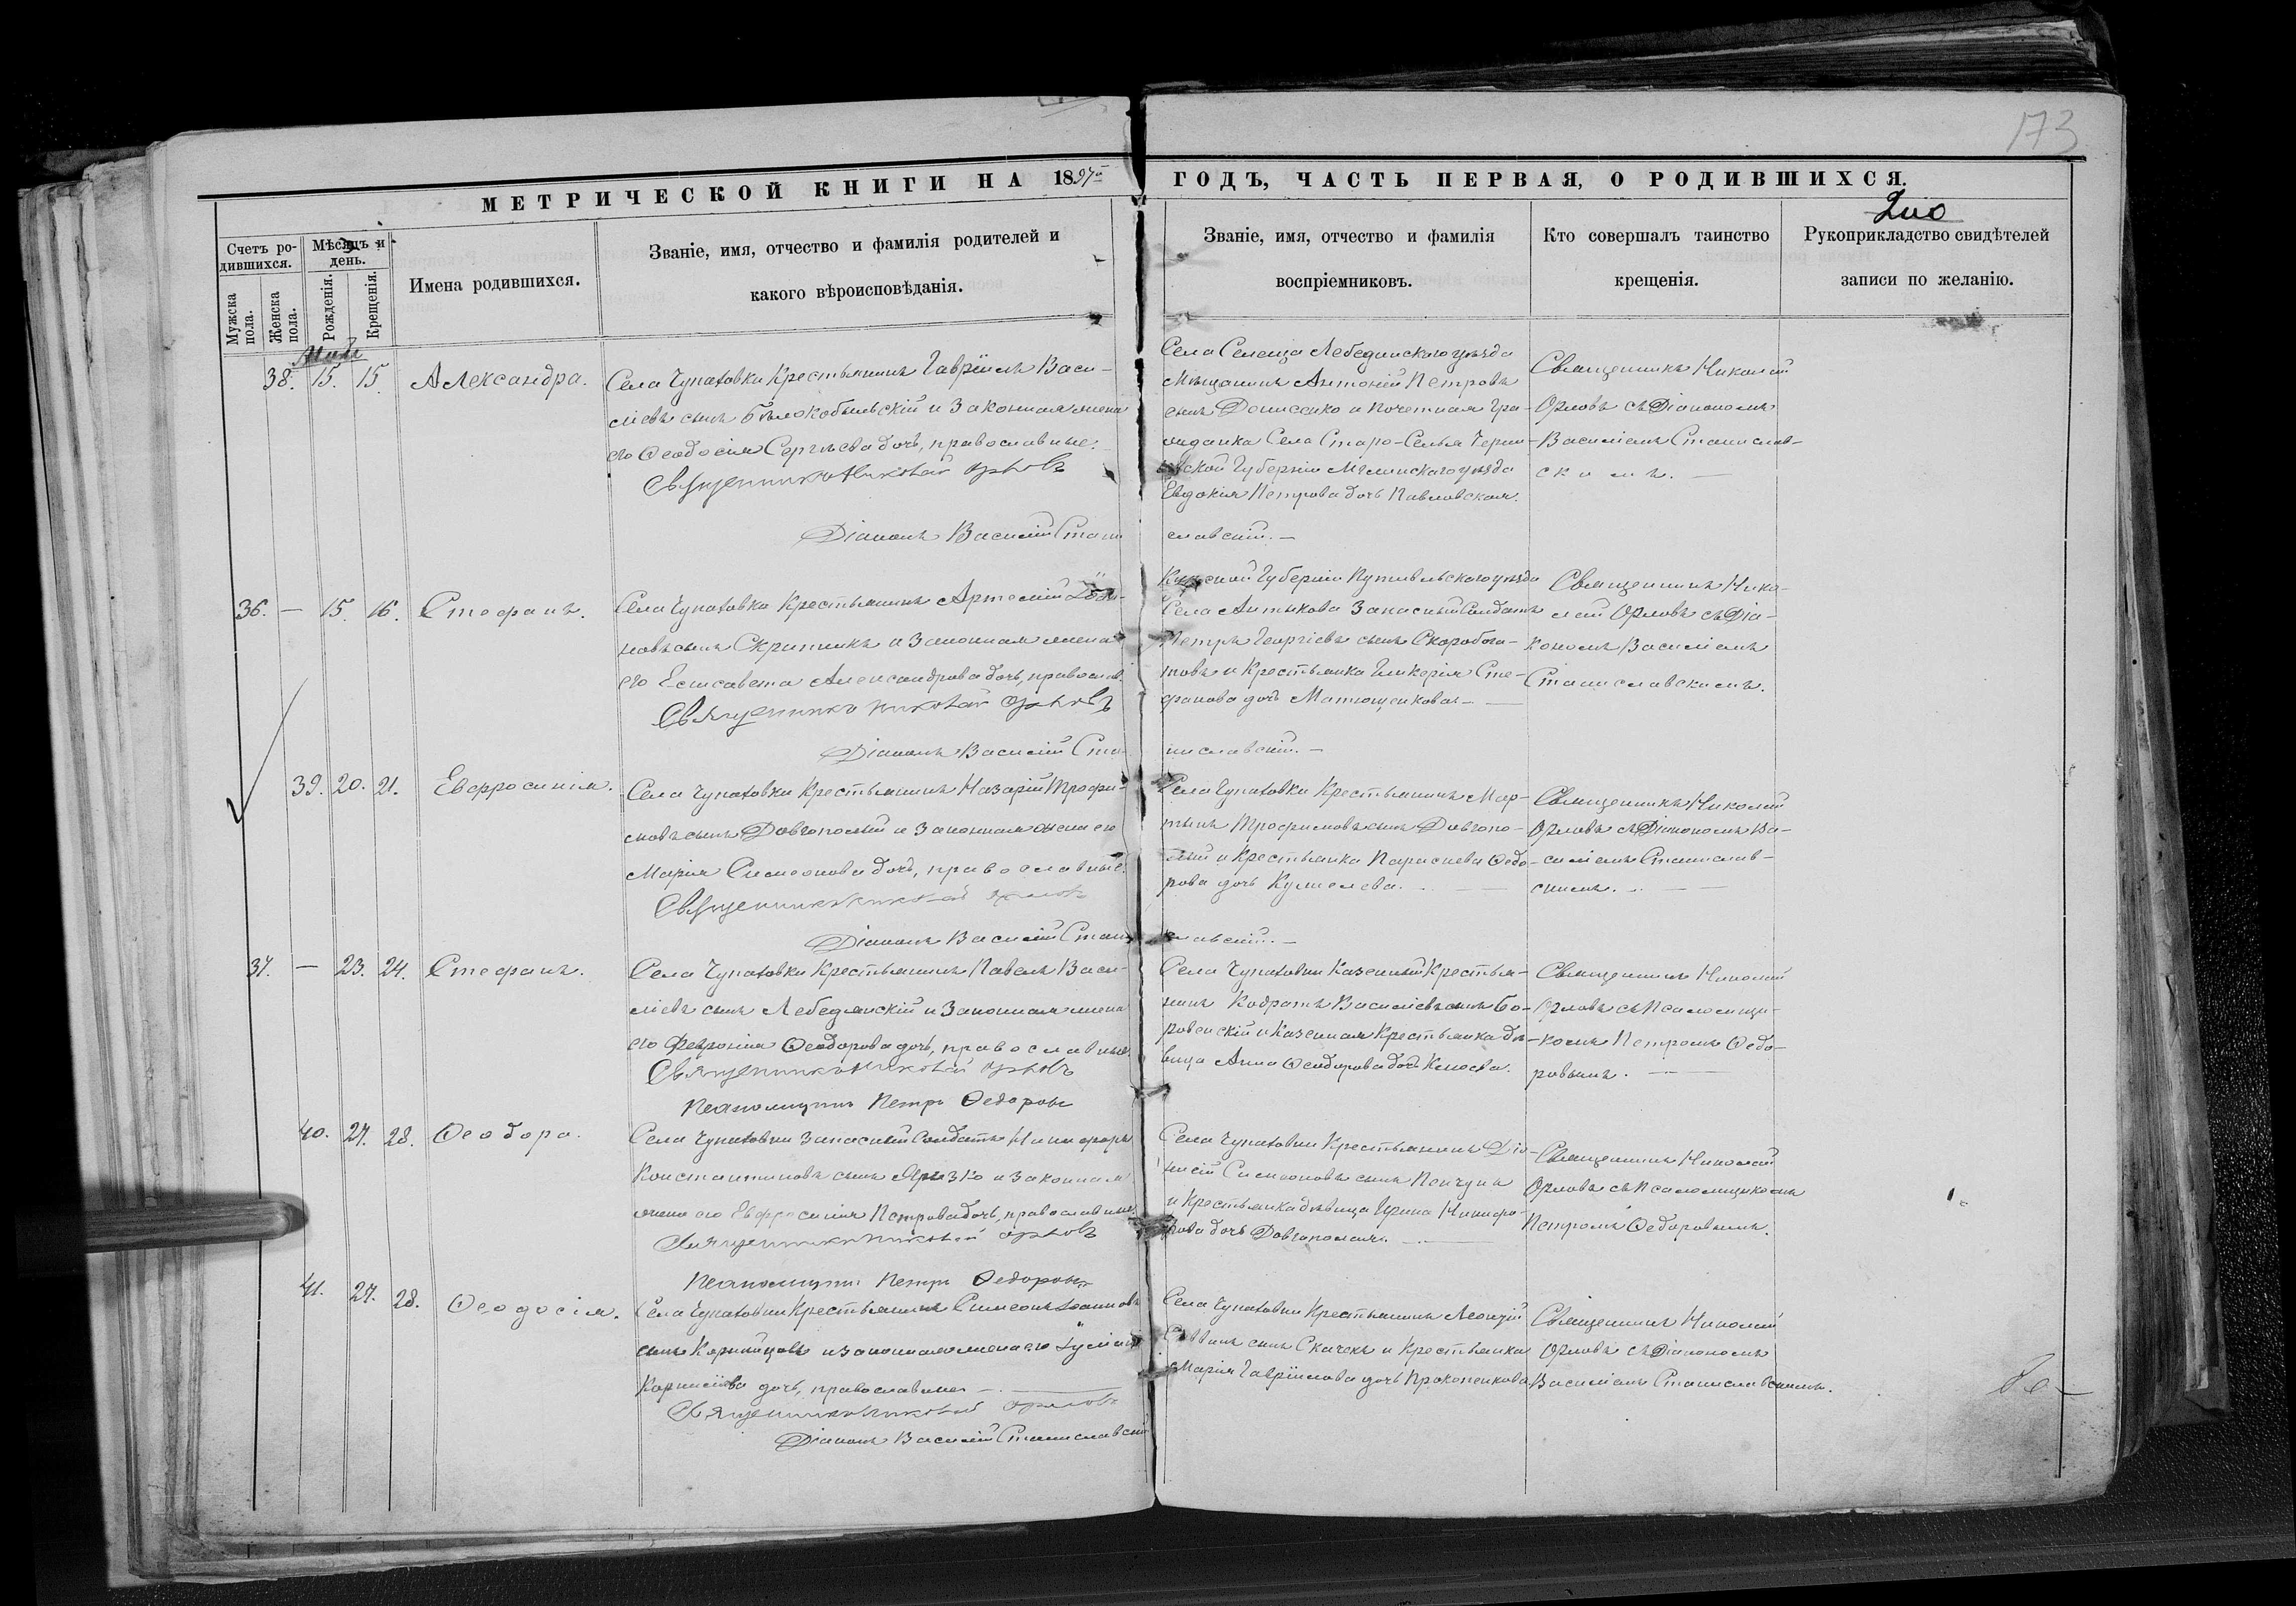 173
МЕТРИЧЕСКОЙ КНИГИ НА 1897й ГОДЪ, ЧАСТЬ ПЕРВАЯ, О РОДИВШИХСЯ.
Счетъ ро-
дившихся.
Мужска
пола.
Женска
пола.
Мѣсяцъ и
день.
Рожденія.
Крещенія.
Имена родившихся.
Званіе, имя, отчество и фамилія родителей и
какого вѣроисповѣданія.
Званіе, имя, отчество и фамилія
воспріемниковъ.
Кто совершалъ таинство
крещенія.
Рукоприкладство свидѣтелей
записи по желанію.
38. 15. 15. Александра.
Села Чупаховки Крестьянинъ Гавріилъ Васи-
ліевъ сынъ Бѣлокобыльскій и Законная жена
его Ѳеодосія Сергѣева дочь, православные.
Священникъ Николай Орловъ
Села Селища Лебединскаго уѣзда
Мѣщанинъ Антоній Петровъ
сынъ Денисенко и почетная гра-
жданка Села Старо-Селья Черни-
говской Губерніи Мглинскаго уѣзда
Евдокія Петрова дочь Павловская.
Священникъ Николай
Орловъ съ Діакономъ
Василіемъ Станислав-
скимъ.
Діаконъ Василій Станиславскій.
36. — 15. 16. Стефанъ.
Села Чупаховки Крестьянинъ Артемій
новъ сынъ Скрипникъ и Законная жена
его Елисавета Александрова дочь, правосл.
Священникъ Николай Орловъ
Курской Губерніи Путивльскаго уѣзда
Села Запасный Солдатъ
Петръ Георгіевъ сынъ Скоробога-
товъ и Крестьянка Гликерія Сте-
фанова дочь Матющенкова
Священникъ Нико-
лай Орловъ съ Діа-
кономъ Василіемъ
Станиславскимъ.
Діаконъ Василій Станиславскій.
39. 20. 21. Евфросинія.
Села Чупаховки Крестьянинъ Назарій Трофи-
мовъ сынъ Довгополый и Законная жена его
Марія Симеонова дочь, православные.
Священникъ Николай Орловъ
Села Чупаховки Крестьянинъ Мар-
тынъ Трофимовъ сынъ Довгопо-
лый и Крестьянка Параскева Ѳедо-
рова дочь
Священникъ Николай
Орловъ съ Діакономъ Ва-
силіемъ Станислав-
скимъ.
Діаконъ Василій Станиславскій.
37. — 23. 24. Стефанъ.
Села Чупаховки Крестьянинъ Павелъ Васи-
ліевъ сынъ Лебедянскій и Законная жена
его Февронія Ѳеодорова дочь, православные.
Священникъ Николай Орловъ
Псаломщикъ Петръ Ѳедоровъ
Села Чупаховки Казенный Крестья-
нинъ Кодратъ Василіевъ сынъ Бо-
ровенскій и Казенная Крестьянка дѣ-
вица Анна Ѳеодорова дочь
Священникъ Николай
Орловъ съ Псаломщи-
комъ Петромъ Ѳедо-
ровымъ.
40. 27. 28. Ѳеодора.
Села Чупаховки Запасный Солдатъ Никифоръ
Константиновъ сынъ и Законная
жена его Евфросинія Петрова дочь, православные.
Священникъ Николай Орловъ
Псаломщикъ Петръ Ѳедоровъ
Села Чупаховки Крестьянинъ Діо-
нисій Симеоновъ сынъ
и Крестьянка дѣвица Ирина Никифо-
рова дочь Довгополая.
Священникъ Николай
Орловъ съ Псаломщикомъ
Петромъ Ѳедоровымъ.
41. 27. 28. Ѳеодосія.
Села Чупаховки Крестьянинъ Симеонъ Іоанновъ
сынъ и законная жена его Іуліанія
дочь, православные
Священникъ Николай Орловъ
Діаконъ Василій Станиславскій
Села Чупаховки Крестьянинъ Леонтій
Саввинъ сынъ Скачекъ и Крестьянка
Марія Гавріилова дочь Прокопенкова
Священникъ Николай
Орловъ съ Діакономъ
Василіемъ Станиславскимъ.